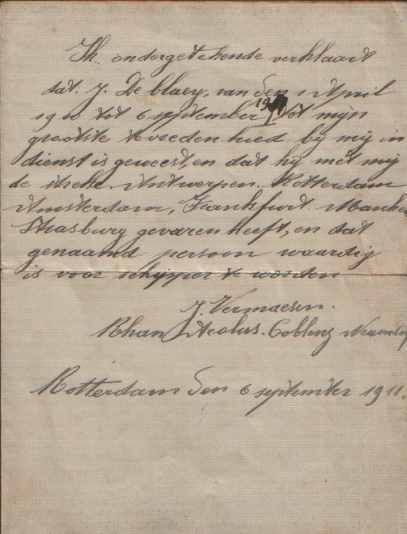 Ik ondergetekende verklaart
dat J. De blaey, van den 1 April
1910 tot 6 september 1911 tot mijn
grootste tevredenhied bij mij in
dienst is geweest en dat hij met mij
de itreke Antwerpen, Rotterdam
Amsterdam, Frankfurt. Manhei
Strasburg gevaren heeft, en dat
genaamd persoon waardig
is voor schipper te worden
J. Vermaesen.
Rhan Aeolus. Coblenz
Rotterdam den 6 september 1911.